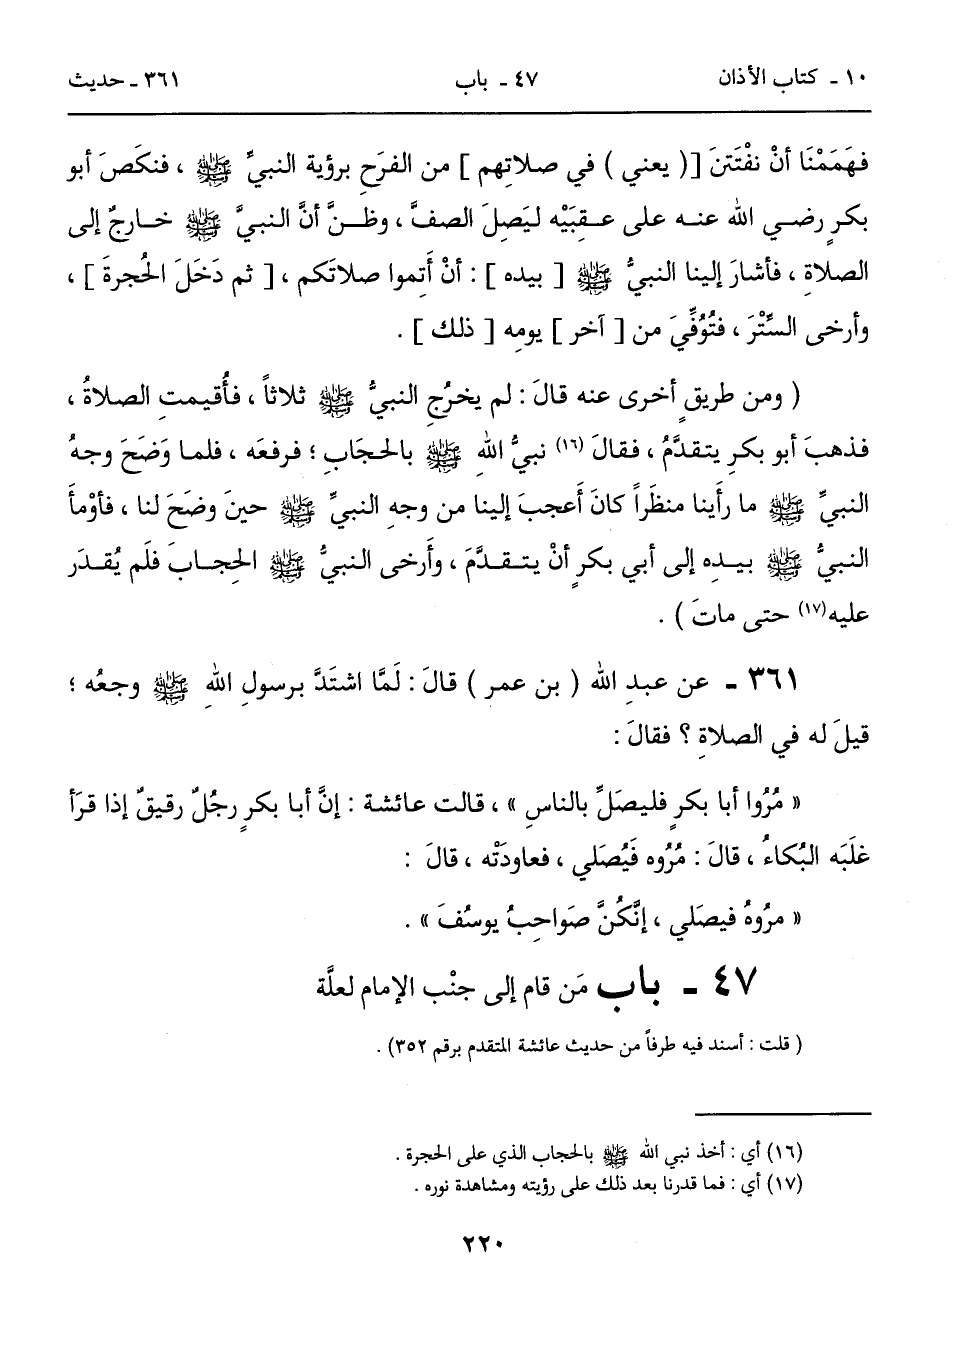 ١٠ - كتاب الأذان ٤٧ - باب ٣٦١ - حديث
فهَمَمْنَا أنْ نفْتَتنَ [( يعني ) في صلاتِهم ] من الفرَحِ برؤية النبيِّ ﷺ ، فنكَصَ أبو
بكرٍ رضي الله عنه على عقِبَيْه ليَصِلَ الصفَّ ، وظنَّ أنَّ النبيَّ ﷺ خارجٌ إلى
الصلاةِ ، فأشارَ إلينا النبيُّ ﷺ [ بيده ] : أنْ أَتِموا صلاتَكم ، [ ثم دَخَلَ الحُجرةَ ] ،
وأرخى السِّتْرَ ، فتُوُفِّيَ من [ آخر ] يومِه [ ذلك ] .
( ومن طريقٍ أخرى عنه قالَ : لم يخرُجِ النبيُّ ﷺ ثلاثاً ، فأُقيمتِ الصلاةُ ،
فذهبَ أبو بكرٍ يتقدَّمُ ، فقالَ (١٦) نبيُّ اللهِ ﷺ بالحجَابِ ؛ فرفعَه ، فلما وَضَحَ وجهُ
النبيِّ ﷺ ما رأَينا منظَراً كانَ أَعجبَ إلينا من وجهِ النبيِّ ﷺ حينَ وضَحَ لنا ، فأوْمأَ
النبيُّ ﷺ بيدِه إلى أبي بكرٍ أنْ يتقدَّمَ ، وأَرخى النبيُّ ﷺ الحِجابَ فلَم يُقدَر
عليه(١٧) حتى ماتَ ) .
٣٦١ - عن عبدِ الله ( بن عمر ) قالَ : لَمَّا اشتَدَّ برسولِ اللهِ ﷺ وجعُه ؛
قيلَ له في الصلاةِ ؟ فقالَ :
« مُرُوا أبا بكرٍ فليصَلِّ بالناسِ » ، قالت عائشة : إنَّ أبا بكرٍ رجُلٌ رقيقٌ إذا قرَأ
غلَبَه البُكاءُ ، قالَ : مُرُوه فَيُصَلي ، فعاودَتْه ، قالَ :
« مرُوهُ فيصَلي ، إنَّكُنَّ صَواحِبُ يوسُفَ » .
٤٧ - باب مَن قام إلى جنْب الإمام لعلَّة
( قلت : أسند فيه طرفاً من حديث عائشة المتقدم برقم ٣٥٢) .
(١٦) أي : أخذ نبي الله ﷺ بالحجاب الذي على الحجرة .
(١٧) أي : فما قدرنا بعد ذلك على رؤيته ومشاهدة نوره .
٢٢٠